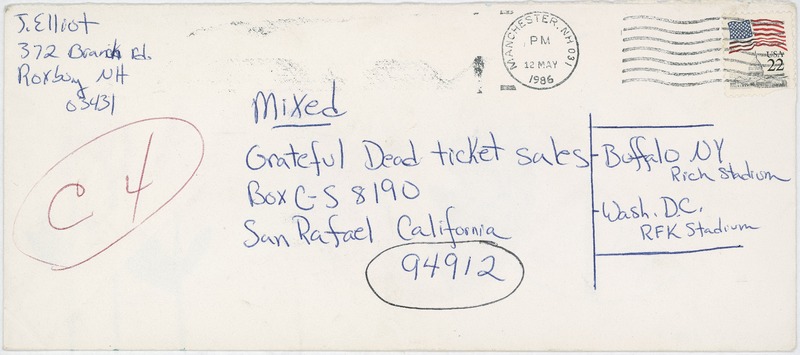 J. Elliot
372 Branch Rd.
Roxbury NH
03431
MANCHESTER, NH 031
PM
12 MAY
1986
USA
22
Mixed
Grateful Dead ticket sales
Box C-S 8190
San Rafael California
94912
Buffalo NY
Rich Stadium
Wash. D.C.
RFK Stadium
C 4